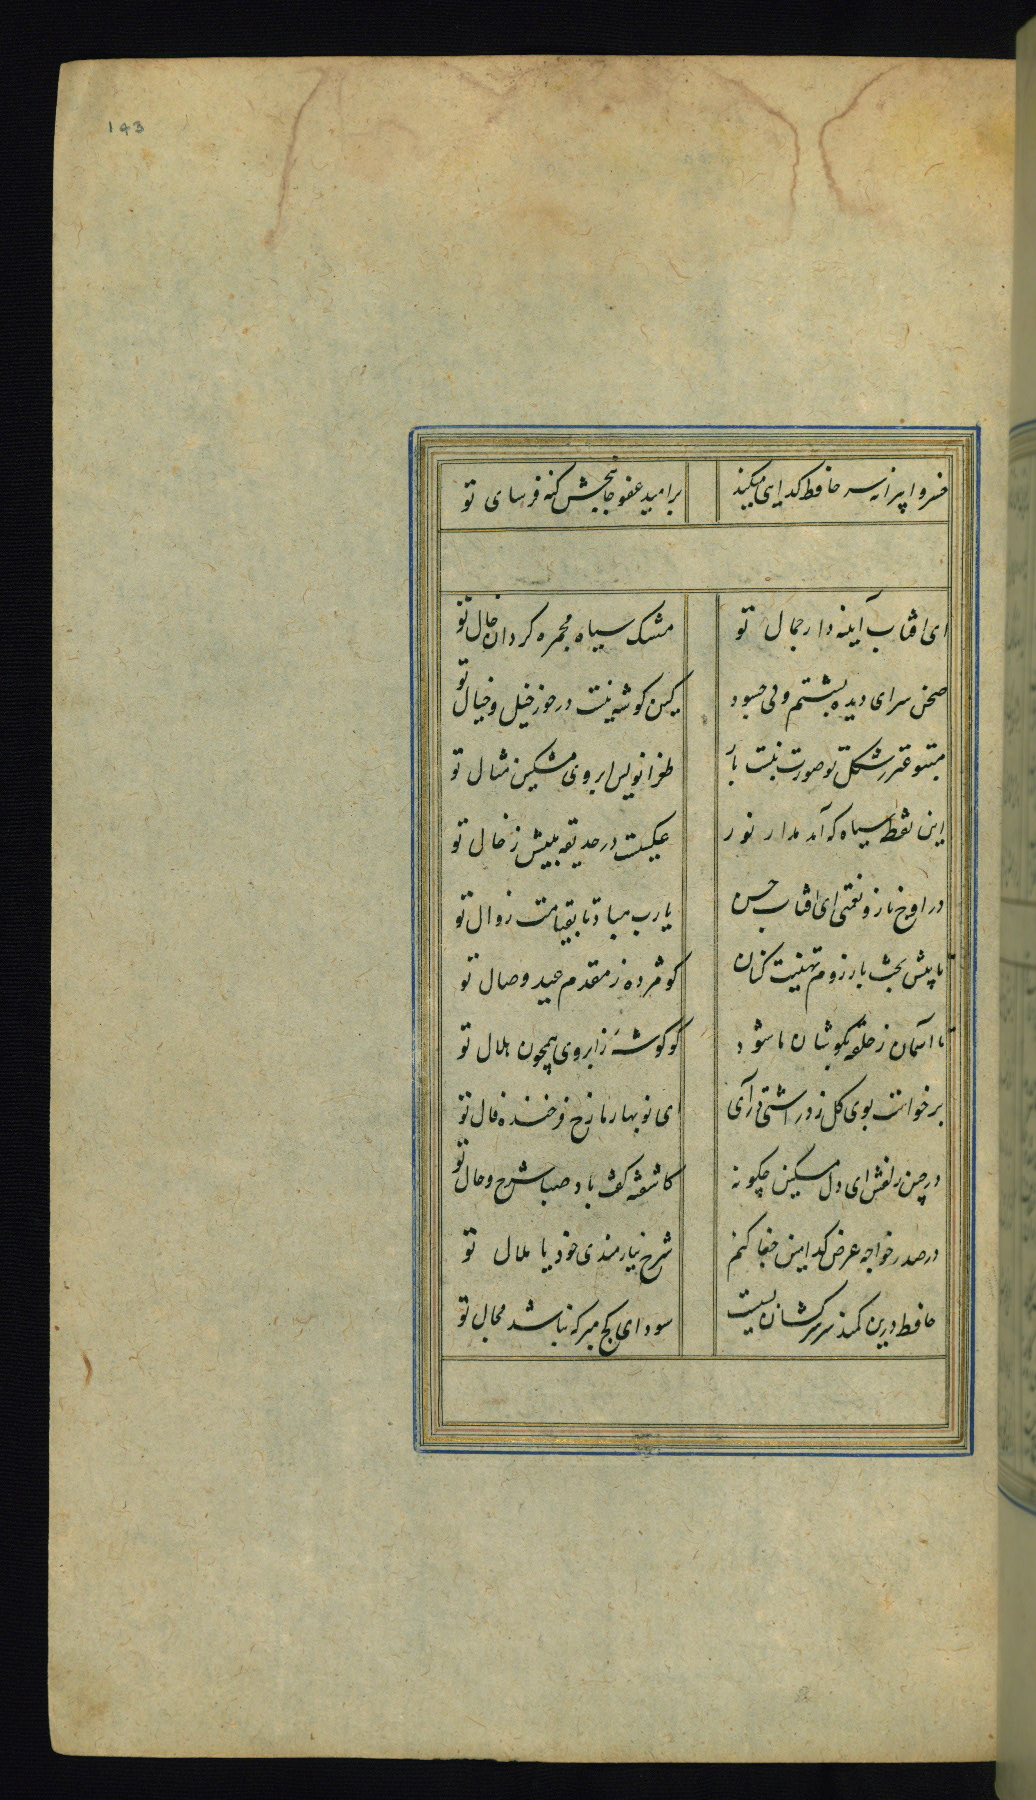 143
خسروا پیرانه سر حافظ کدایی میکند برامید عفو جانبخش کنه فرسای تو
ای افتاب آینه دار جمال تو مشک سیاه مجمره کردان خال تو
صحن سرای دیده بشستم ولی چسود کین کوشه نیست درخور خیل و خیال تو
شکل تو صورت نبست باز طغرانویس ابروی مشکین مثال تو
این نقطه سیاه که آمد مدار نور عکسیست در حدیقه بینش ز خال تو
در اوج ناز و نعمتی ای افتاب حسن یارب مباد تا بقیامت زوال تو
تا پیش بخت باز روم تهنیت کنان کو مژده ز مقدم عید وصال تو
تا آسمان ز حلقه بکوشان ما شود کو کوشه ز ابروی همچون هلال تو
برخواست بوی کل ز در اشتی درآی ای نوبهار ما رخ فرخنده فال تو
در چین زلفش ای دل مسکین چکونه کاشفته کفت باد صبا شرح و حال تو
در صدر خواجه عرض کدامین جفا کنم شرح نیازمندی خود یا ملال تو
حافظ درین کمند سر سرکشان بسیست سودای کج مبر که نباشد مجال تو